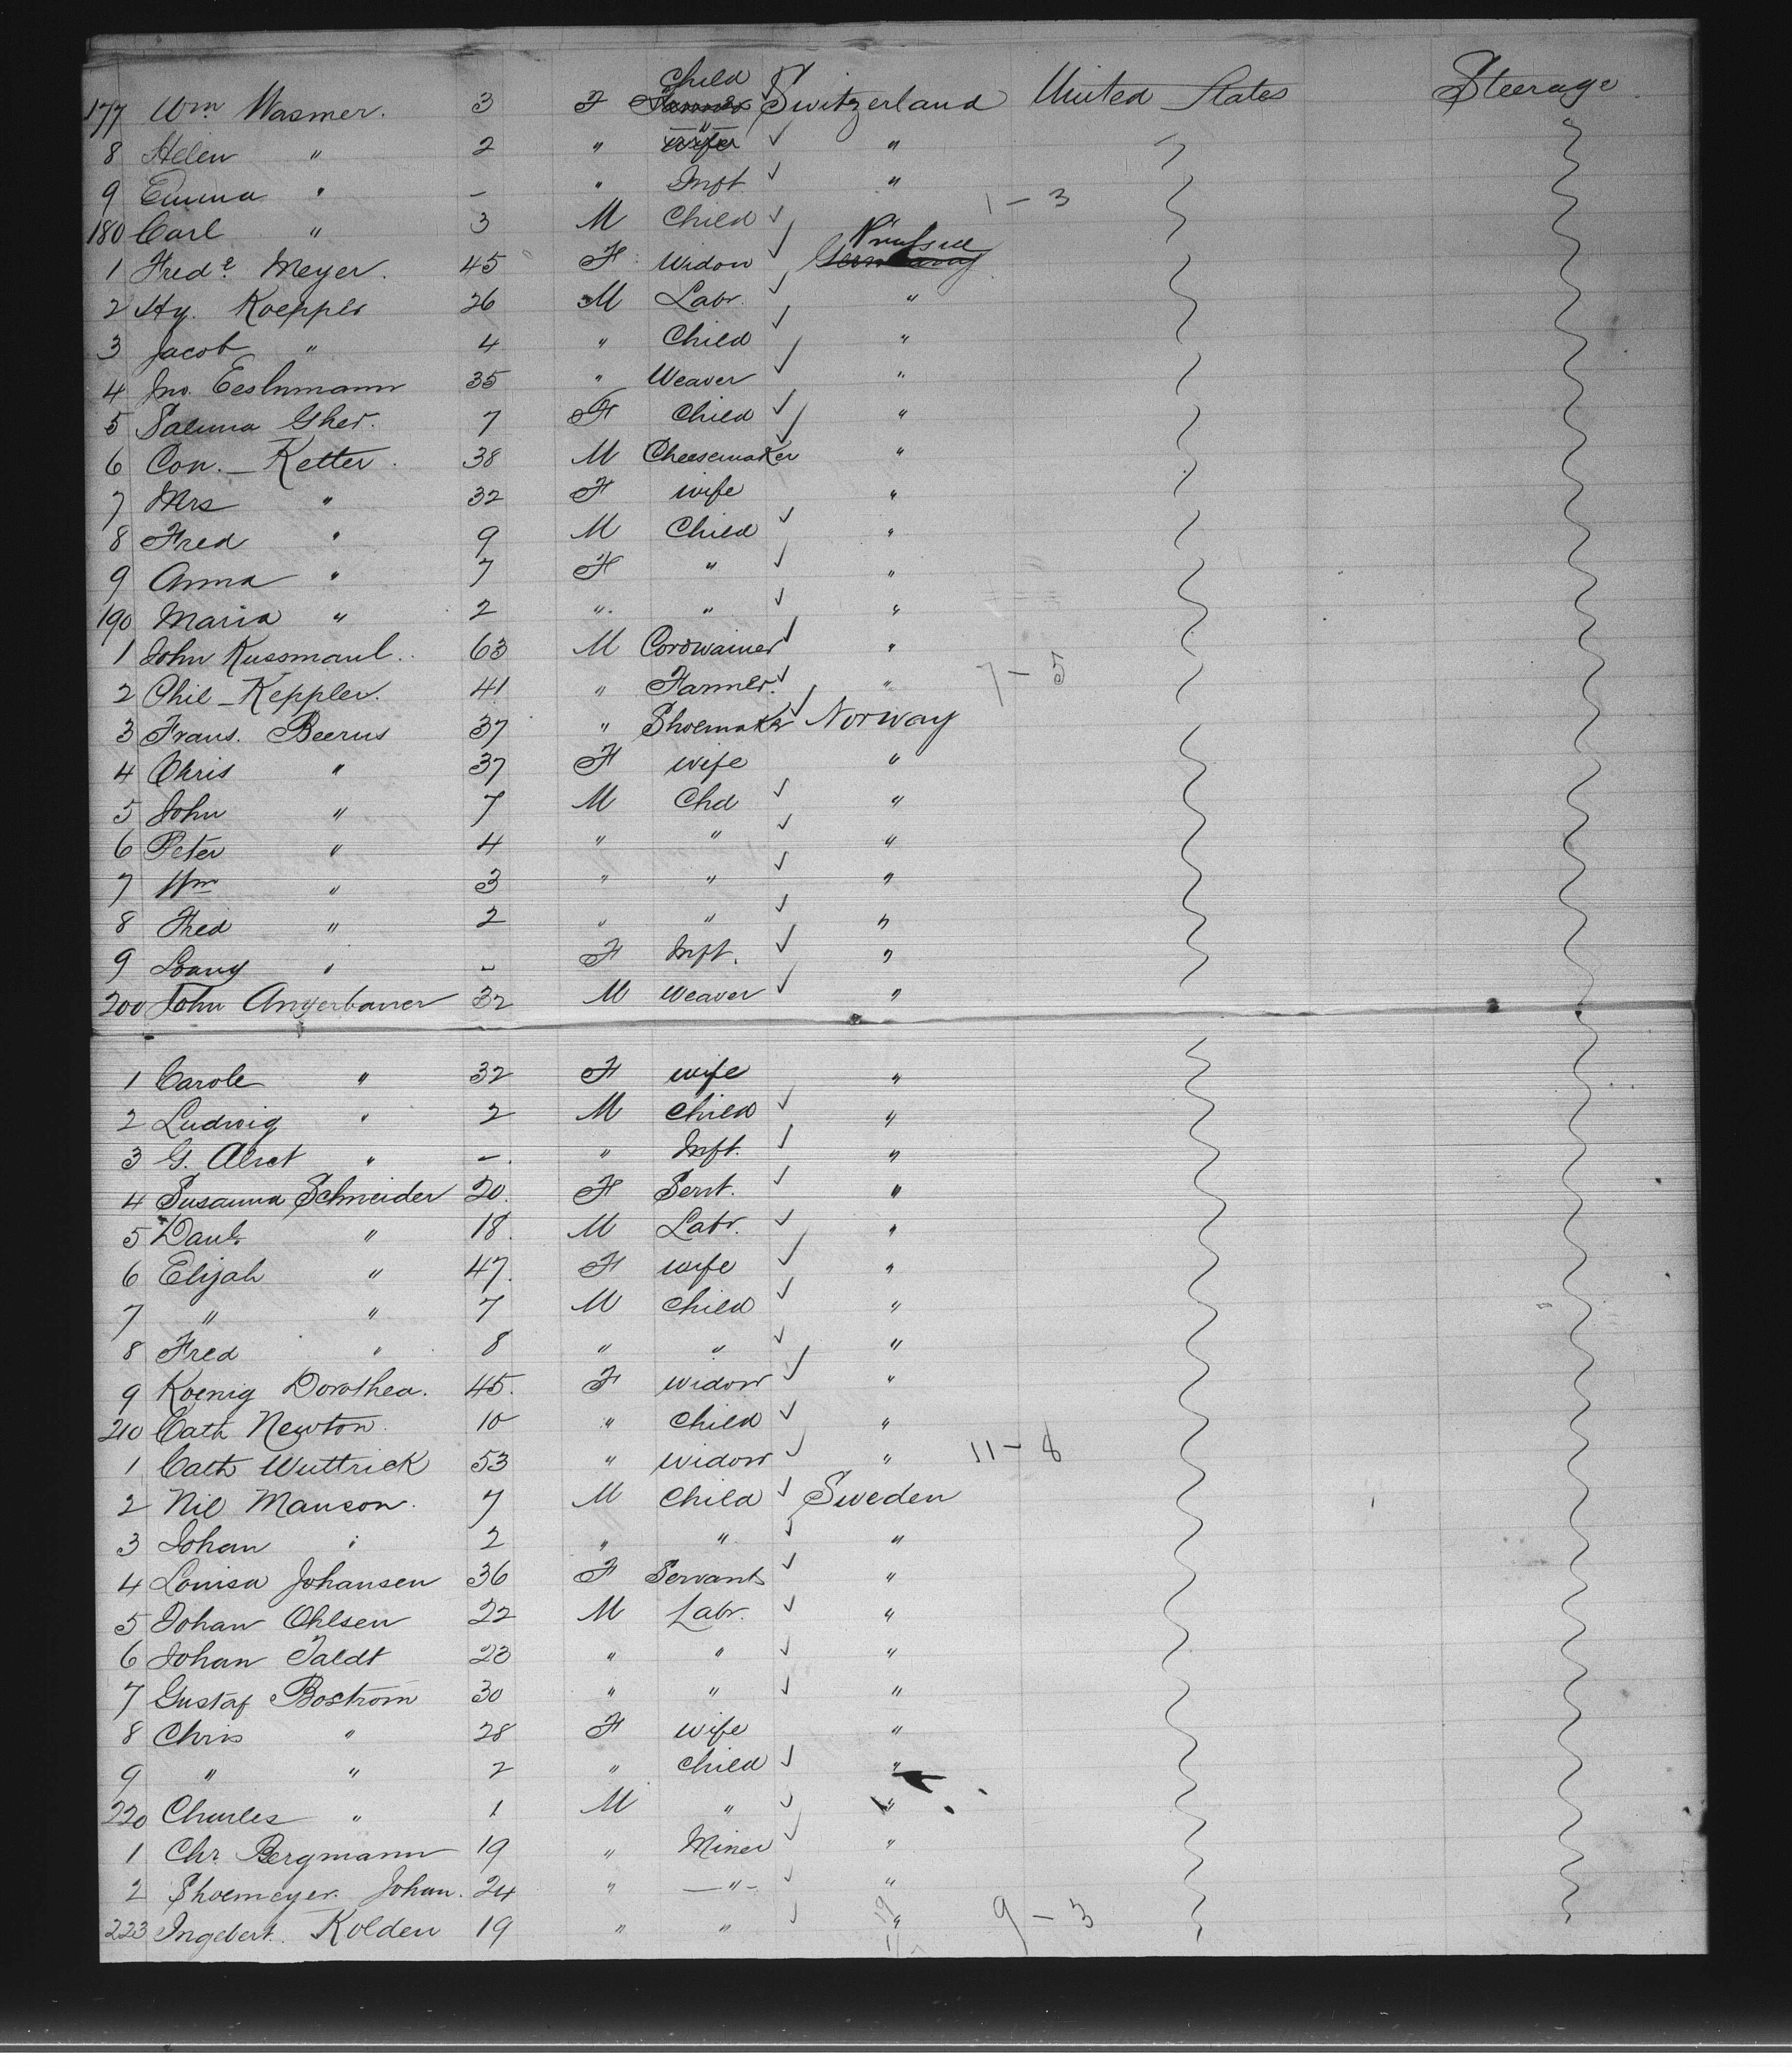 177 Wm Wasmer. 3 F Child Farmer Switzerland United States Steerage
8 Helen " 2 " " wife "
9 Emma " - " Inft "
1 - 3
180 Carl " 3 M Child "
1 Fred.e Meyer. 45 F Widow Prussia Germany
2 Hy. Koeppler 26 M Labr. "
3 Jacob " 4 " Child "
4 Jno. 35 " Weaver "
5 Gher. 7 F Child "
6 Con. - Ketter. 38 M Cheesemaker "
7 Mrs " 32 F wife "
8 Fred " 9 M Child "
9 Anna " 7 F " "
190 Maria " 2 " " "
1 John Kussmaul. 63 M Cordwainer "
2 Phil - Keppler. 41 " Farmer. " 7 - 5
3 Frans. Beerus 37 " Shoemaker Norway
4 Chris " 37 F wife "
5 John " 7 M Chd "
6 Peter " 4 " " "
7 Wm " 3 " " "
8 Fred " 2 " " "
9 " - F Inft. "
200 John Angerbauer 32 M Weaver "
1 Carole " 32 F wife "
2 Ludwig " 2 M Child "
3 G. " - " Inft. "
4 Susanna Schneider 20. F Servt. "
5 Danl. " 18. M Labr. "
6 Elijah " 47. F wife "
7 " " 7 M Child "
8 Fred " 8 " " "
9 Koenig Dorothea. 45. F widow "
210 Cath Newton. 10 " Child "
1 Cath Wuttrick 53 " widow " 11 - 8
2 Nil Manson. 7 M Child Sweden
3 Johan " 2 " " "
4 Louisa Johansen 36 F Servant "
5 Johan Ohlsen 22 M Labr. "
6 Johan Taldt 23 " " "
7 Gustaf Bostrom 30 " " "
8 Chris " 28 F wife "
9 " " 2 " Child "
220 Charles " 1 M " "
1 Chr. Bergmann 19 " Miner "
2 Shoemeyer. Johan. 24 " - " - "
223 Ingebert. Kolden 19 " " " 9 - 3